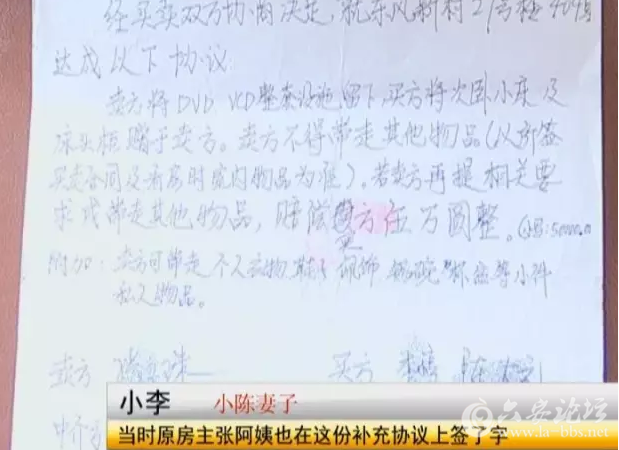 经买卖双方协商决定，就东风新村21号楼404房
达成以下协议
卖方将DVD VCD整套设施留下，买方将次卧小床及
床头柜赠于卖方。卖方不得带走其他物品（以所签
买卖合同及看房时室内物品为准）。若卖方再提相关要
求或带走其他物品，赔偿买方伍万圆整。
附加：卖方可带走个人衣物 鞋子 佩饰 锅碗 等小件
私人物品。
卖方 买方
中介
小李 小陈妻子
当时原房主张阿姨也在这份补充协议上签了字
六安论坛
www.la-bbs.net